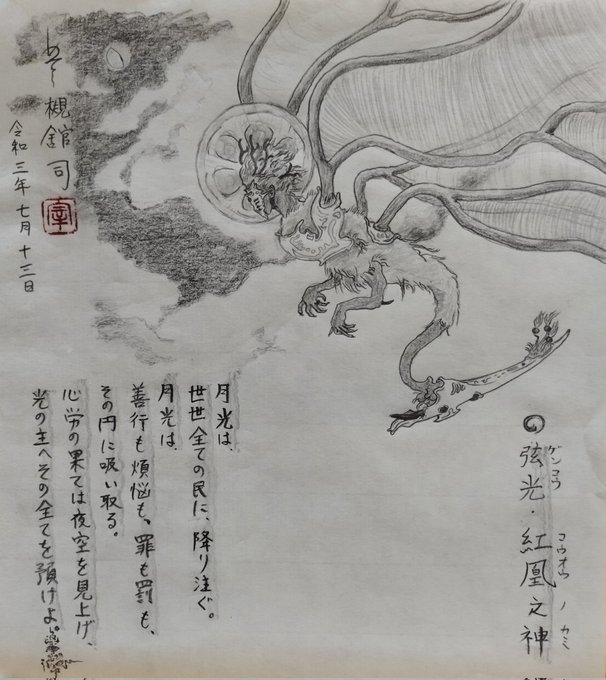 弦光・紅凰之神
ゲンコウ コウオウ ノ カミ
月光は、
世世全ての民に、降り注ぐ。
月光は、
善行も煩悩も、罪も罰も、
その円に吸い取る。
心労の果ては夜空を見上げ、
光の主へその全てを預けよ。
槻舘司
令和三年七月十三日